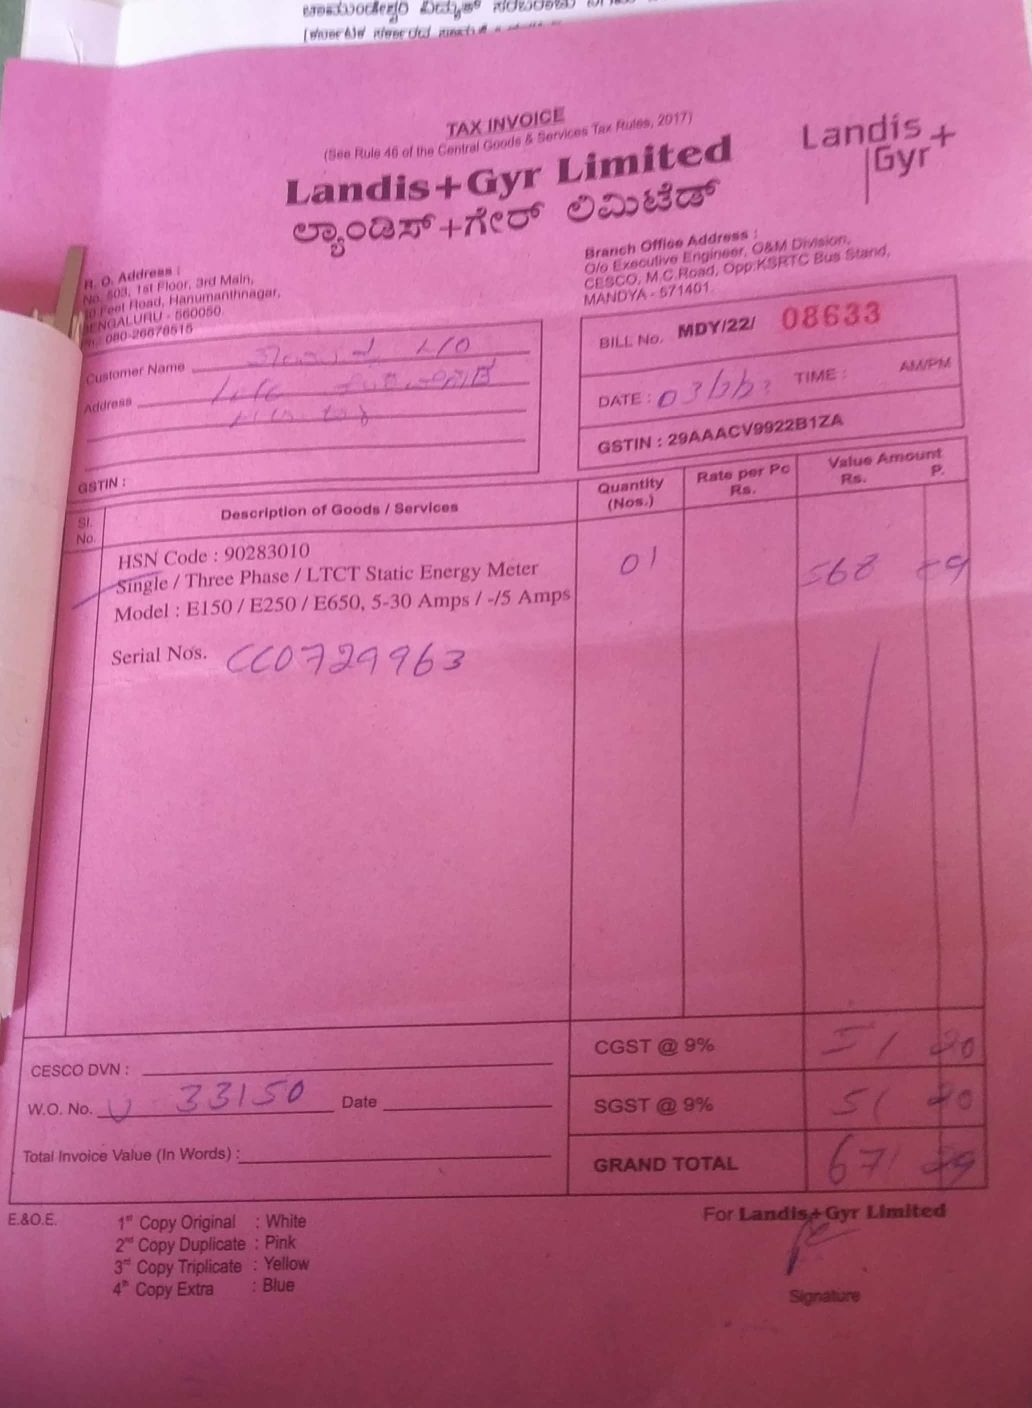 TAX INVOICE
(See Rule 46 of the Central Goods & Services Tax Rules, 2017)
Landis+Gyr Limited
ಲ್ಯಾಂಡಿಸ್+ಗೇರ್ ಲಿಮಿಟೆಡ್
Landis+
Gyr
R. O. Address :
No. 503, 1st Floor, 3rd Main,
Feet Road, Hanumanthnagar,
BENGALURU - 560050
080-26678515
Branch Office Address :
O/o Executive Engineer, O&M Division,
CESCO, M.C.Road, Opp:KSRTC Bus Stand,
MANDYA - 571401.
Customer Name
Address
GSTIN :
BILL No. MDY/22/ 08633
DATE : TIME : AM/PM
GSTIN : 29AAACV9922B1ZA
Sl. No. Description of Goods / Services Quantity (Nos.) Rate per Pc Rs. Value Amount Rs. P.
HSN Code : 90283010
Single / Three Phase / LTCT Static Energy Meter 01 568
Model : E150 / E250 / E650, 5-30 Amps / -/5 Amps
Serial Nos. CC0729963
CGST @ 9% 51 20
CESCO DVN :
W.O. No. 33150 Date
SGST @ 9% 51 20
Total Invoice Value (In Words) :
GRAND TOTAL 671
E.&O.E.
1st Copy Original : White
2nd Copy Duplicate : Pink
3rd Copy Triplicate : Yellow
4th Copy Extra : Blue
For Landis+Gyr Limited
Signature